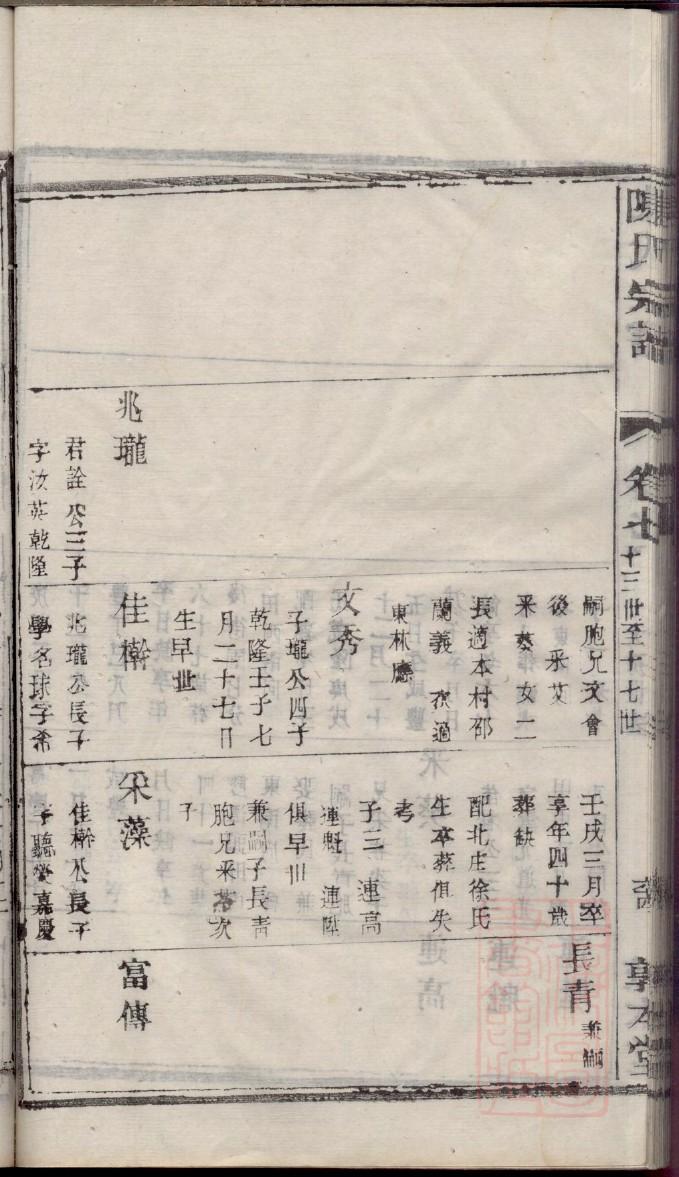 陳氏宗譜
卷七
十三世至十七世
敦本堂
兆瓏
君詮公三子
字汝英乾隆
嗣胞兄文會
後 采艾
采葵女二
長適本村邵
蘭義 次適
東林廳
文秀
子瓏公四子
乾隆壬子七
月二十七日
生早世
佳櫸
兆瓏公長子
學名球字希
壬戌三月卒
享年四十歲
葬缺
配北庄徐氏
生卒葬俱失
考
子三 連高
連魁 連陞
俱早世
兼嗣子長青
胞兄采芬次
子
采藻
佳櫸公長子
字聽瑩嘉慶
長青 兼嗣
富傳